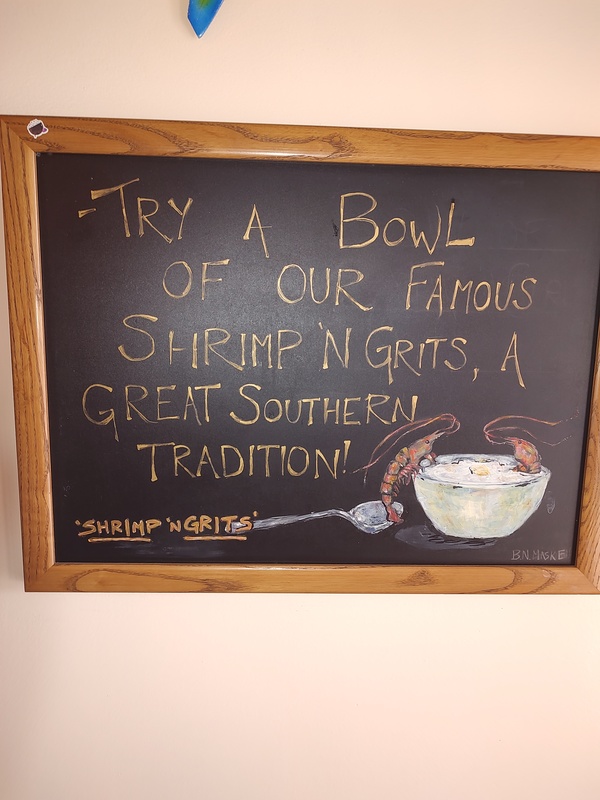 -TRY A BOWL
OF OUR FAMOUS
SHRIMP 'N GRITS, A
GREAT SOUTHERN
TRADITION!
'SHRIMP 'N GRITS'